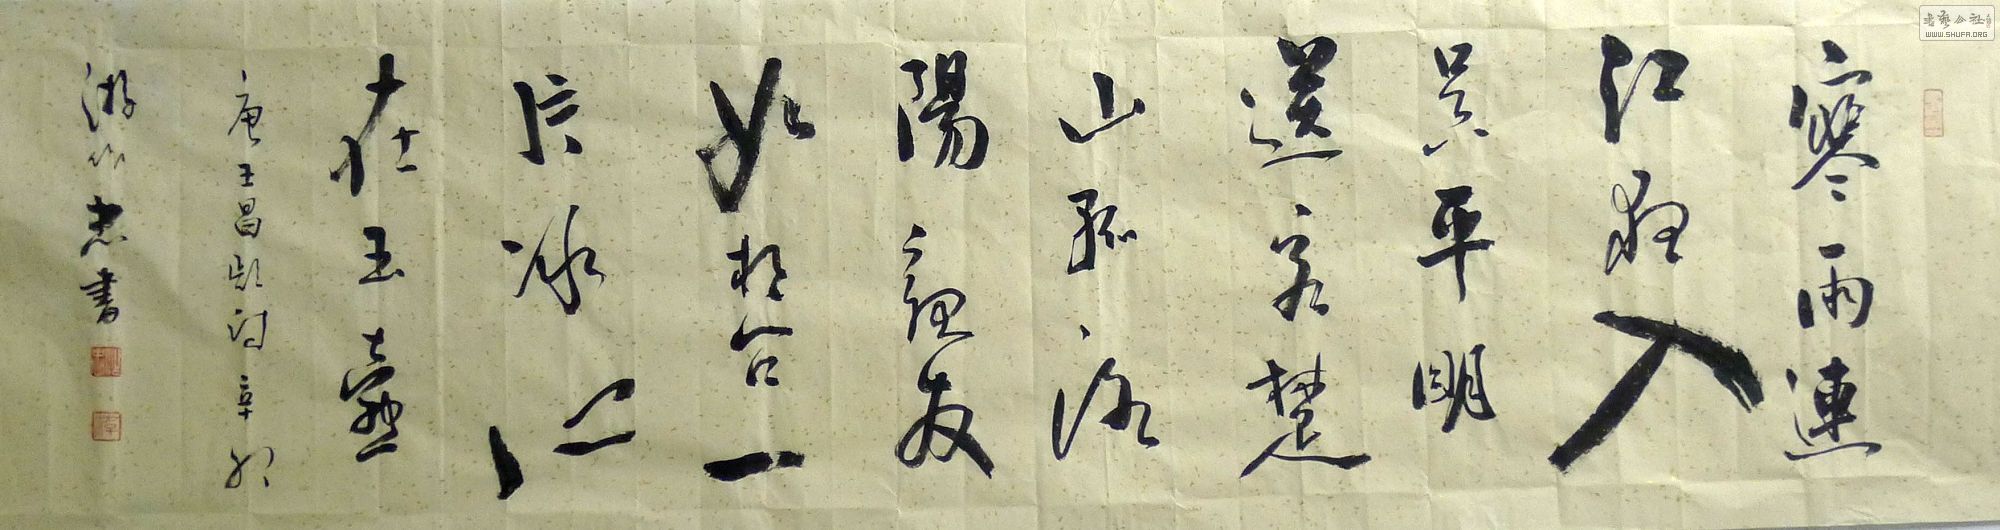 寒雨連
江夜入
吳平明
送客楚
山孤洛
陽親友
如相合一
片冰心
在玉壺
唐王昌齡詩辛卯
游忠書
書藝公社
WWW.SHUFA.ORG